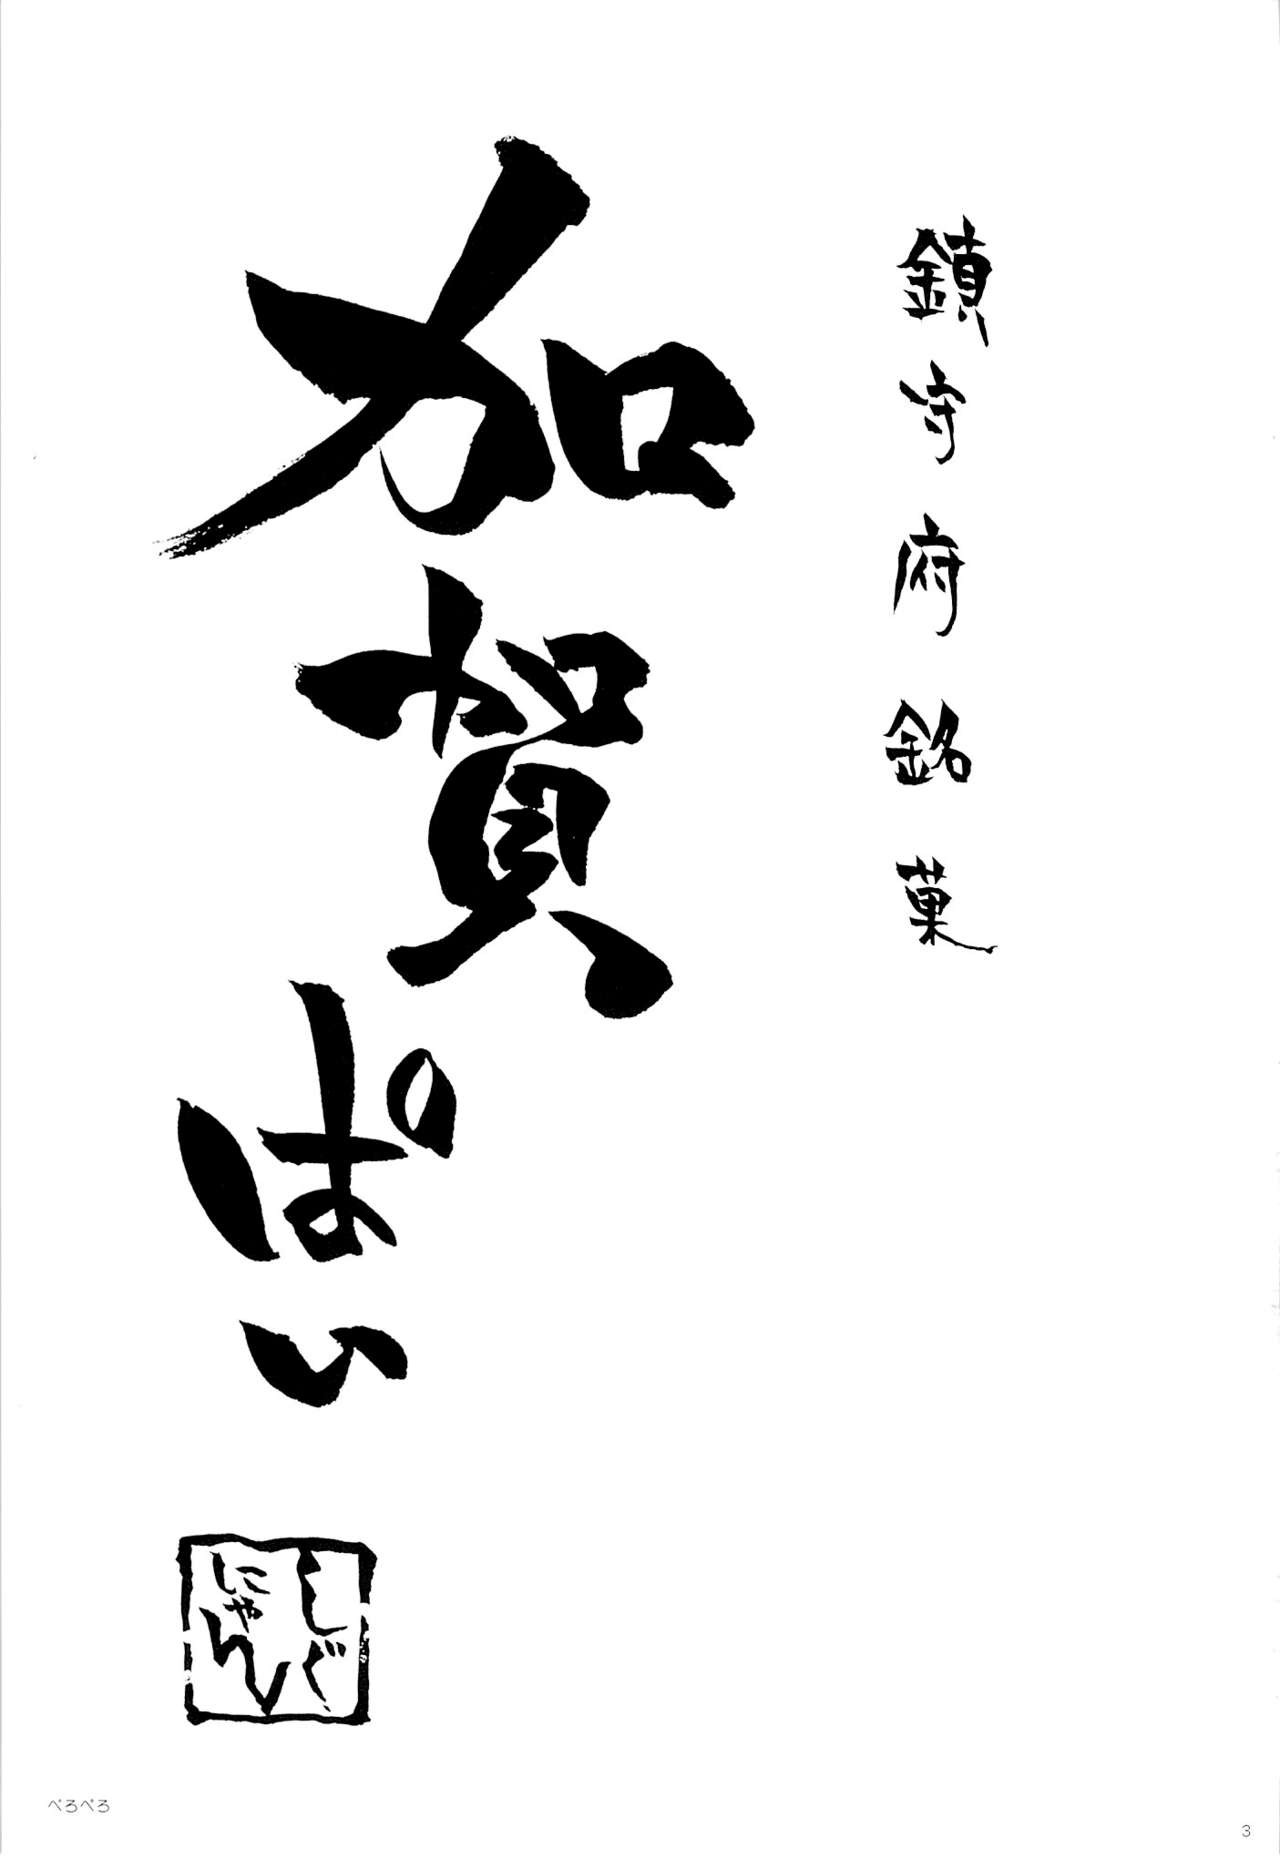 鎮守府銘菓
加賀ぱい
しぐ
にゃん
ぺろぺろ
3